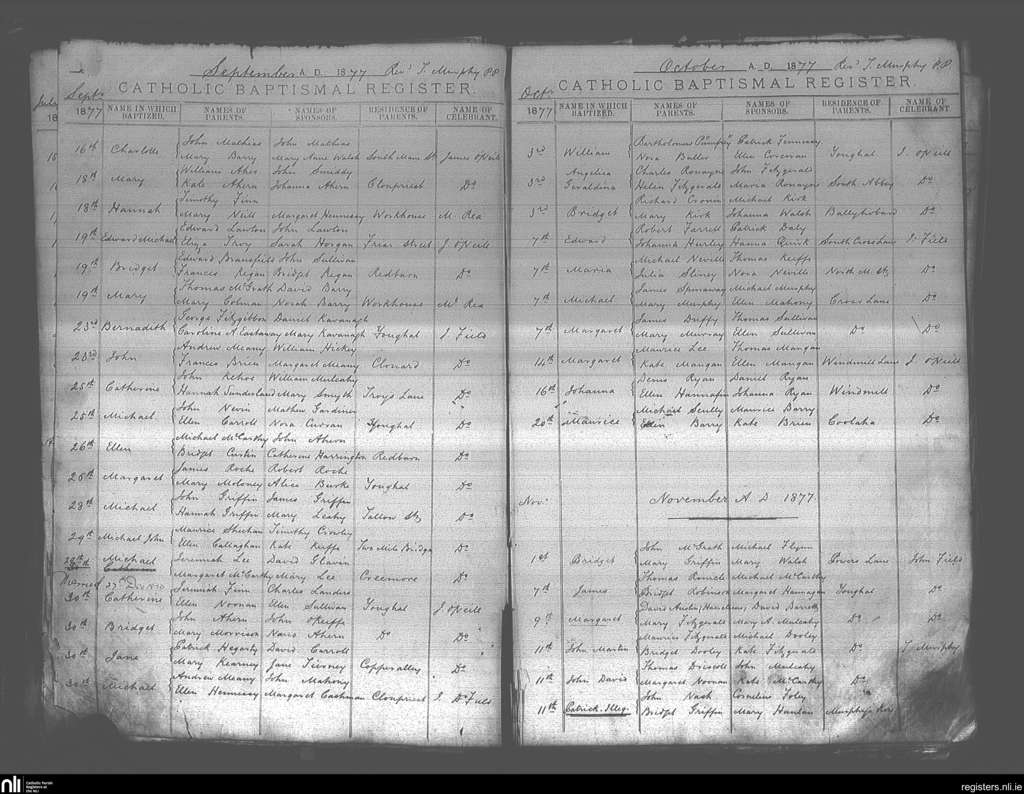 September A.D. 1877 Revd T. Murphy P.P.
CATHOLIC BAPTISMAL REGISTER.
Sept. 1877 NAME IN WHICH BAPTIZED. NAMES OF PARENTS. NAMES OF SPONSORS. RESIDENCE OF PARENTS. NAME OF CELEBRANT.
John Mathias John Mathias
16th Charlotte Mary Barry Mary Anne Walsh South Main St James O'Neill
William Ahes John Smiddy
18th Mary Kate Ahern Johanna Ahern Clonpriest Do
Timothy Finn
18th Hannah Mary Neill Margaret Hennessy Workhouse M. Rea
Edward Lawton John Lawton
19th Edward Michael Eliza Troy Sarah Horgan Friar Street J. O'Neill
Edward Bransfield John Sullivan
19th Bridget Frances Regan Bridget Regan Redbarn Do
Thomas McGrath David Barry
19th Mary Mary Colman Norah Barry Workhouse M. Rea
George Fitzgibbon Daniel Kavanagh
23rd Bernadeth Caroline A Castaway Mary Kavanagh Youghal J. Field
Andrew Meany William Hickey
23rd John Frances Brien Margaret Meany Clonard Do
John Kehoe William Mulcahy
25th Catherine Hannah Sunderland Mary Smyth Troys Lane Do
John Nevin Mathew Gardiner
25th Michael Ellen Carroll Nora Curran Youghal Do
Michael McCarthy John Ahern
26th Ellen Bridget Custin Catherine Harrington Redbarn Do
James Roche Robert Roche
28th Margaret Mary Moloney Alice Burke Youghal Do
John Griffin James Griffin
28th Michael Hannah Griffin Mary Leahy Tallow St Do
Maurice Sheehan Timothy Crowley
29th Michael John Ellen Callaghan Kate Keeffe Two Mile Bridge Do
29th Michael Jeremiah Lee David Glavan
Margaret McCarthy Mary Lee Creemore Do
Jeremiah Finn Charles Landers
30th Catherine Ellen Noonan Ellen Sullivan Youghal J. O'Neill
John Ahern John O'Keeffe
30th Bridget Mary Morrison Nano Ahern Do Do
Patrick Hegarty David Carroll
30th Jane Mary Kearney Jane Tierney Copperalley Do
Andrew Meany John Mahony
30th Michael Ellen Hennessy Margaret Cashman Clonpriest J. Field
October A.D. 1877 Revd T. Murphy P.P.
CATHOLIC BAPTISMAL REGISTER.
Octr. 1877 NAME IN WHICH BAPTIZED. NAMES OF PARENTS. NAMES OF SPONSORS. RESIDENCE OF PARENTS. NAME OF CELEBRANT.
Bartholomew Pumfrey Patrick Finnessy
3rd William Nora Butler Ellen Corcoran Youghal J. O'Neill
Angelica Charles Ronayne John Fitzgerald
3rd Geraldina Helen Fitzgerald Maria Ronayne South Abbey Do
Richard Cronin Michael Kirk
3rd Bridget Mary Kirk Johanna Walsh Ballyhobard Do
Robert Farrell Patrick Daly
7th Edward Johanna Hurley Hanna Quirk South Cross Lane J. Field
Michael Neville Thomas Keeffe
7th Maria Julia Sliney Nora Neville North M. St Do
James Spinaway Michael Murphy
7th Michael Mary Murphy Ellen Mahony Cross Lane Do
James Duffy Thomas Sullivan
7th Margaret Mary Murray Ellen Sullivan Do Do
Maurice Lee Thomas Mangan
14th Margaret Kate Mangan Ellen Mangan Windmill Lane J. O'Neill
Denis Ryan Daniel Ryan
16th Johanna Ellen Hannafin Johanna Ryan Windmill Do
Michael Scully Maurice Barry
20th Maurice Ellen Barry Kate Brien Coolaha Do
Novr. November A D 1877
John McGrath Michael Flynn
1st Bridget Mary Griffin Mary Walsh Powers Lane John Field
Thomas Michael McCarthy
7th James Bridget Robinson Margaret Hannagan Youghal Do
David Barrett
9th Margaret Mary Fitzgerald Mary A. Mulcahy Do Do
Maurice Fitzgerald Michael Dooley
11th John Martin Bridget Dooley Kate Fitzgerald Do T. Murphy
Thomas Driscoll John Mulcahy
11th John Davis Margaret Noonan Kate McCarthy Do
John Nash Cornelius Foley
11th Patrick Illeg. Bridget Griffin Mary Hanlan Murphys Row
nli Catholic Parish Registers at the NLI
registers.nli.ie